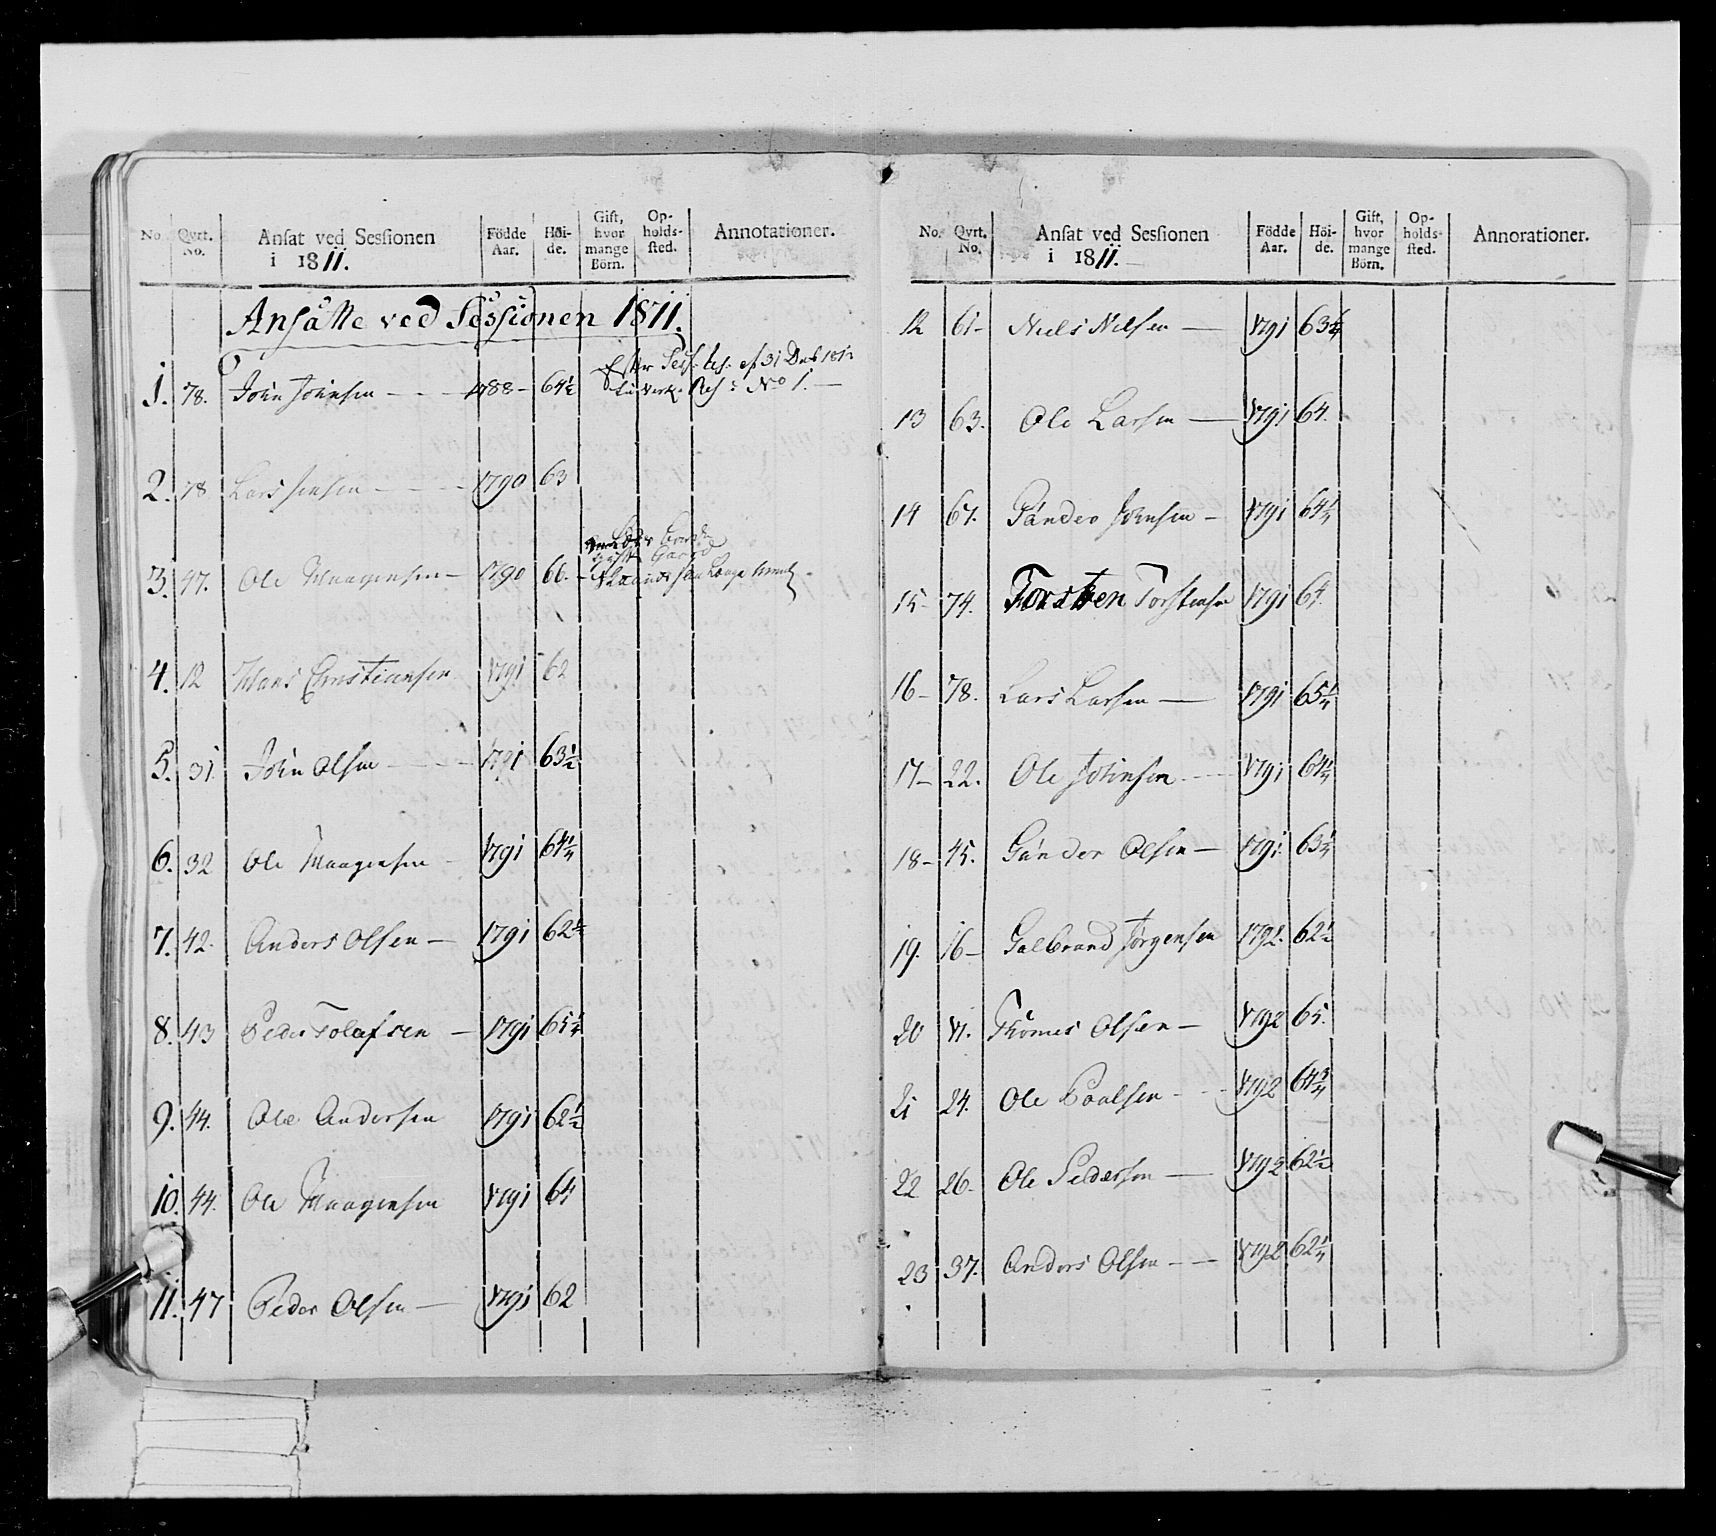 No. Qvrt. No. Ansat ved Sessionen i 1811. Födde Aar. Höi-de. Gift, hvor mange Börn. Op-holds-sted. Annotationer.
Ansatte ved Sessionen 1811.
1. 78. John Johnsen - - - 1788 - 64½ Efter Sess. 31 Dec 1812
No 1. -
2. 78 Lars Jensen - - - 1790 63
3. 47. Ole Maagensen - 1790 66. -
4. 12 Hans Christiansen 1791 62
5. 31. John Olsen - - - 1791 63½
6. 32 Ole Maagensen - 1791 64¼
7. 42. Anders Olsen - 1791 62½
8. 43 Peder Tolafsen - 1791 65¼
9. 44. Ole Andersen 1791 62½
10. 44. Ole Maagensen 1791 64
11. 47 Peder Olsen - 1791 62
No. Qvrt. No. Ansat ved Sessionen i 1811. Födde Aar. Höi-de. Gift, hvor mange Börn. Op-holds-sted. Annorationer.
12 61- Niels Nilsen - 1791 63¼
13 63. Ole Larsen - 1791 64.
14 67. Gunder Johnsen - 1791 64¼
15- 74. Torsten Torstensen 1791 64
16- 78. Lars Larsen - 1791 65¼
17- 22. Ole Johnsen - - 1791 64¼
18- 45. Gunder Olsen - 1791 63¼
19. 16- Gulbrand Jörgensen 1792. 62½
20 Thomas Olsen - 1792 65.
21 24. Ole Poulsen - - 1792 64¾
22 26. Ole Pedersen - 1792 62½
23 37. Anders Olsen - - 1792 62¼